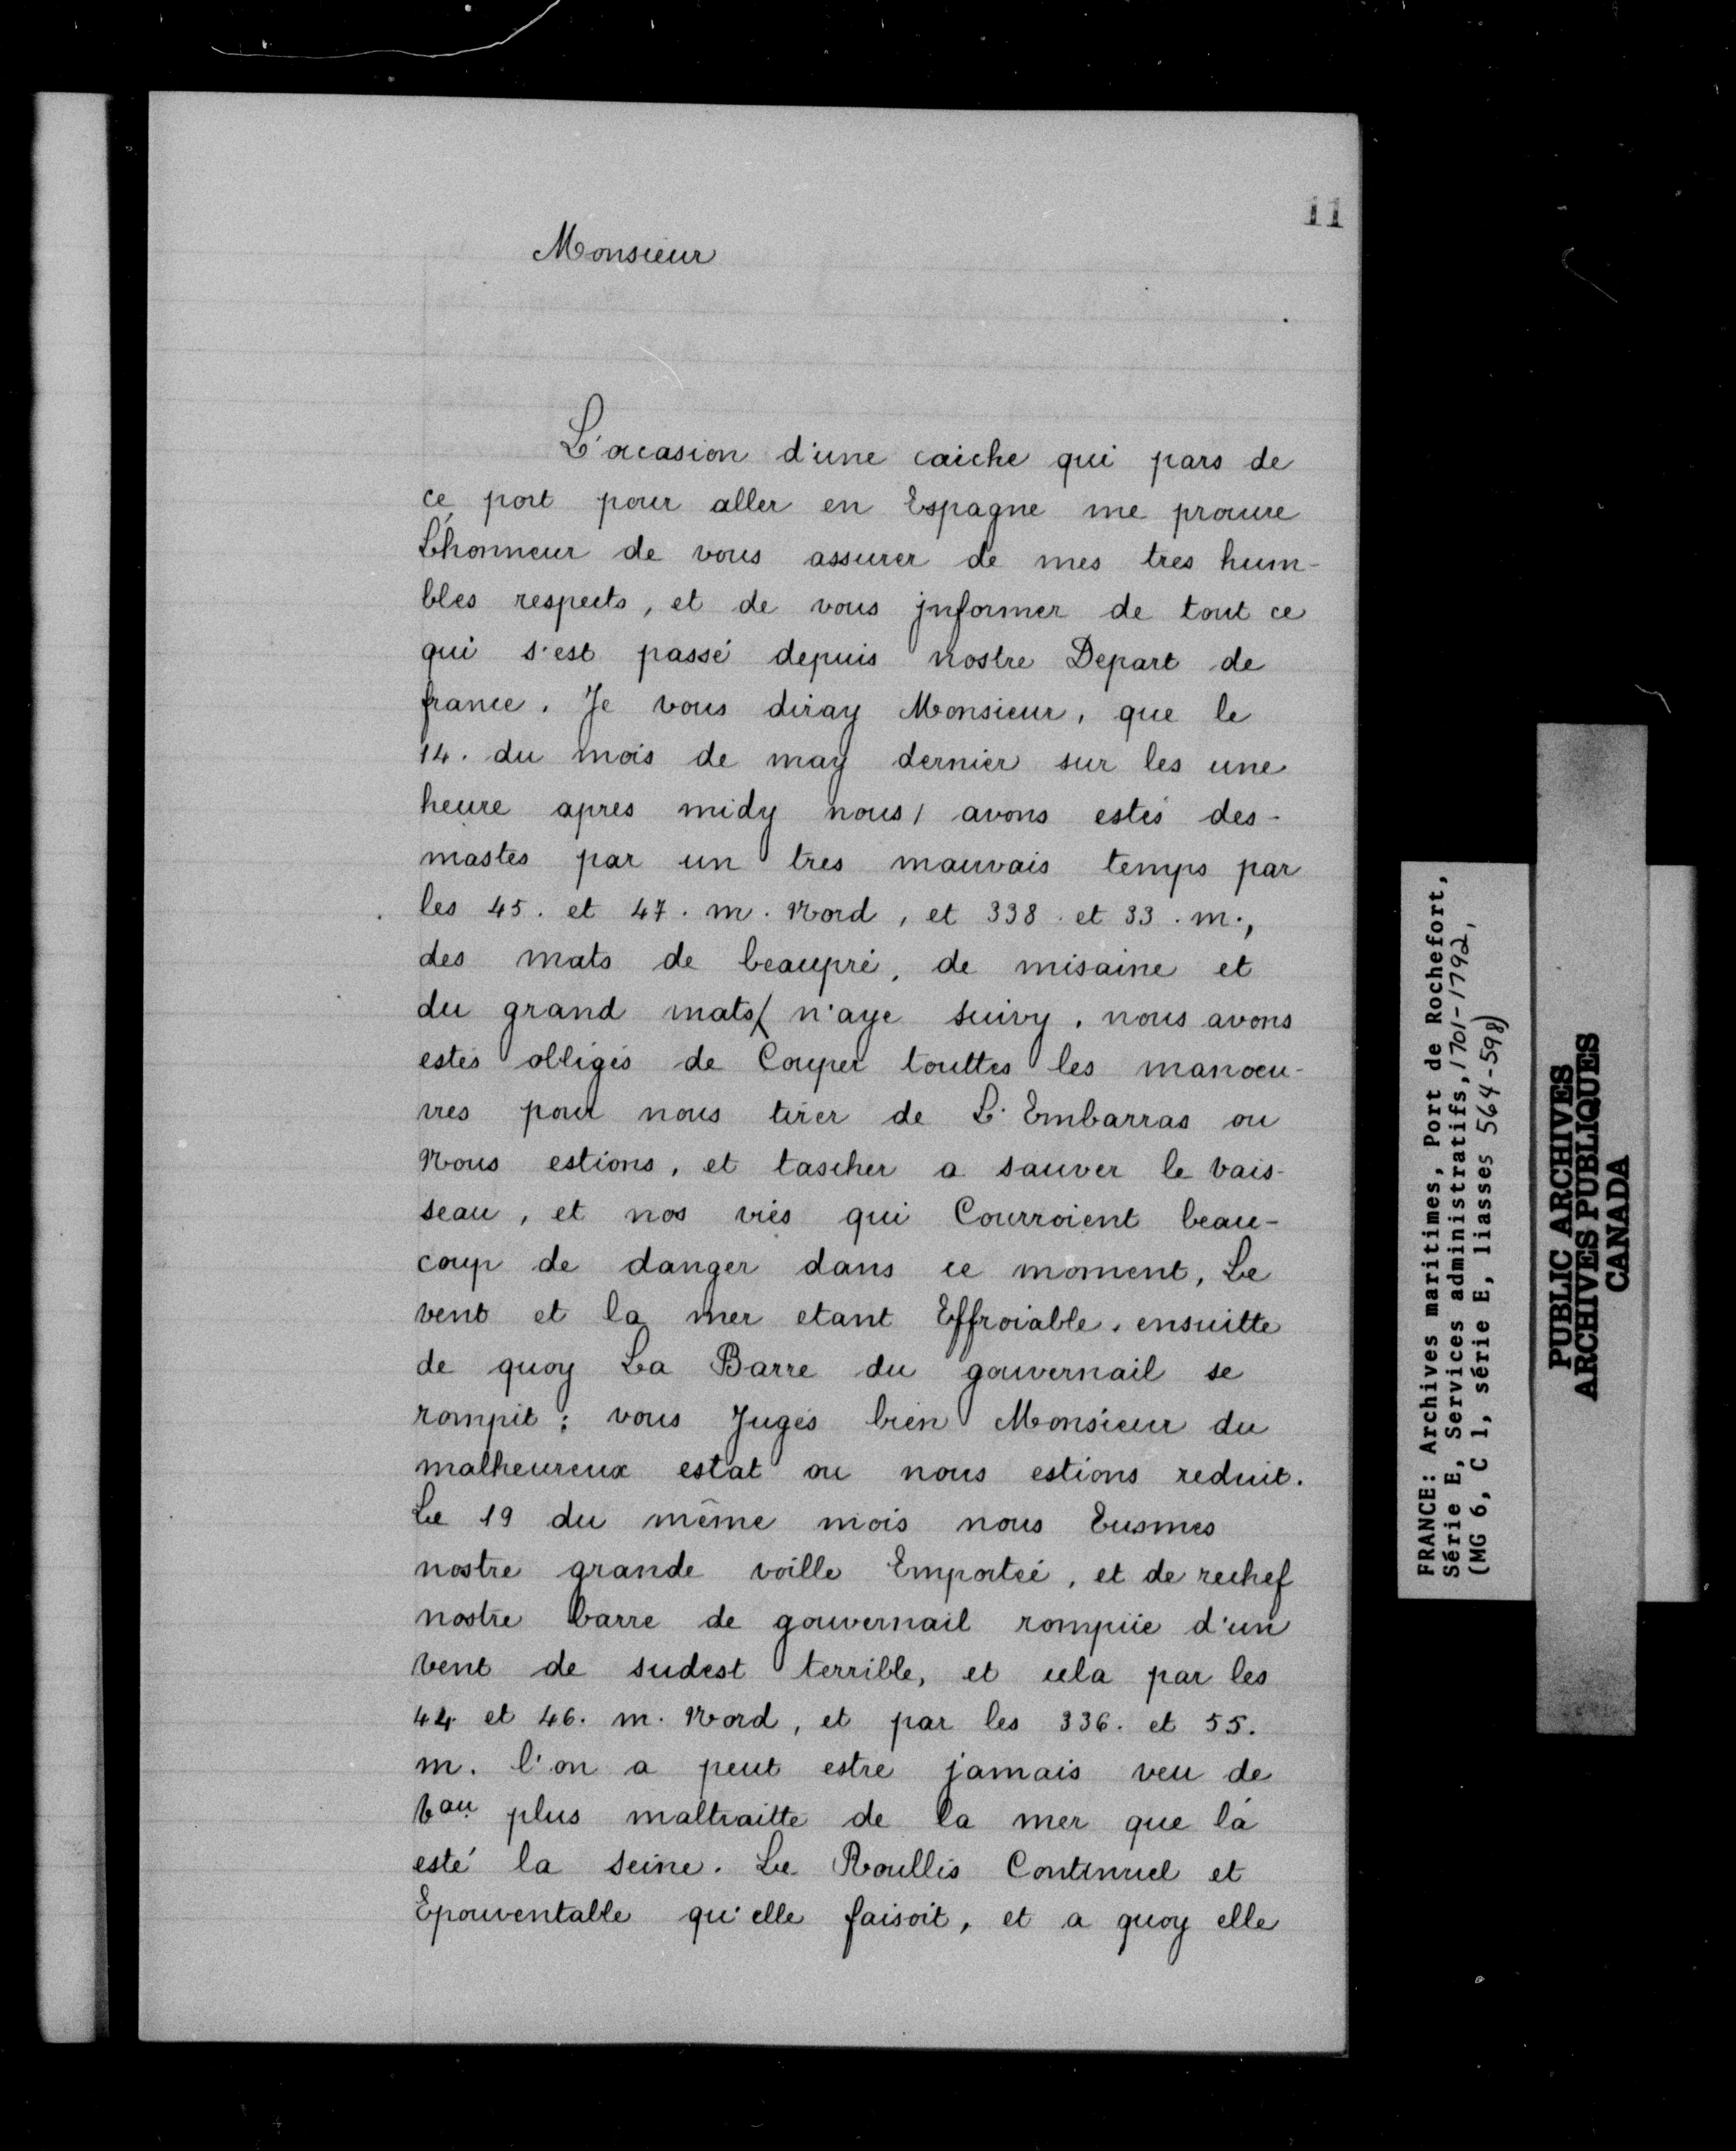 11
Monsieur
L'occasion d'une caiche qui pars de
ce port pour aller en Espagne me procure
L'honneur de vous assurer de mes tres hum-
bles respects, et de vous jnformer de tout ce
qui s'est passé depuis nostre Depart de
france. Je vous diray Monsieur, que le
14. du mois de may dernier sur les une
heure apres midy nous/ avons estés des-
mastes par un tres mauvais temps par
les 45. et 47. m. Nord, et 338. et 33. m.,
des mats de beaupré, de misaine et
du grand mats( n'aye suivy, nous avons
estés obligés de Couper touttes les manoeu-
vres pour nous tirer de L'Embarras ou
Nous estions, et tascher a sauver le vais-
seau, et nos viës qui Courroient beau-
coup de danger dans ce moment, Le
vent et la mer etant Effroiable, ensuitte
de quoy La Barre du gouvernail se
rompit; vous Jugés bien Monsieur du
malheureux estat ou nous estions reduit.
Le 19 du même mois nous Eusmes
nostre grande voille Emporteé, et de rechef
nostre barre de gouvernail rompüe d'un
vent de sudest terrible, et cela par les
44. et 46. m. Nord, et par les 336. et 55.
m. l'on a peut estre jamais veu de
Vau plus maltraitte de la mer que la
esté la seine. Le Roullis Continuel et
Epouventable qu'elle faisoit, et a quoy elle
FRANCE: Archives maritimes, Port de Rochefort,
Série E, Services administratifs, 1701-1792,
(MG 6, C 1, série E, liasses 564-598)
PUBLIC ARCHIVES
ARCHIVES PUBLIQUES
CANADA